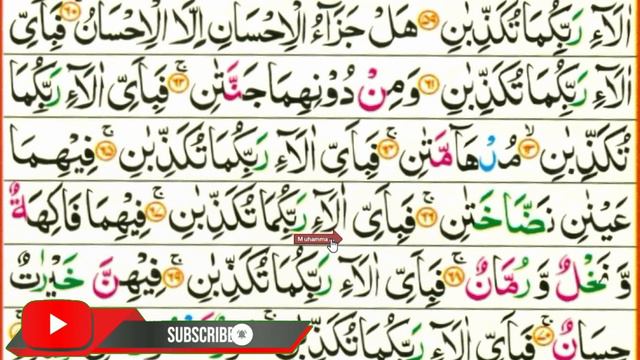 اٰلَآءِ رَبِّكُمَا تُكَذِّبٰنِ ۝٥٩ هَلْ جَزَآءُ الْاِحْسَانِ اِلَّا الْاِحْسَانُ ۝٦٠ۚ فَبِاَىِّ
اٰلَآءِ رَبِّكُمَا تُكَذِّبٰنِ ۝٦١ وَمِنْ دُوْنِهِمَا جَنَّتٰنِ ۝٦٢ۚ فَبِاَىِّ اٰلَآءِ رَبِّكُمَا
تُكَذِّبٰنِ ۝٦٣ۙ مُدْهَآمَّتٰنِ ۝٦٤ۚ فَبِاَىِّ اٰلَآءِ رَبِّكُمَا تُكَذِّبٰنِ ۝٦٥ۚ فِيْهِمَا
عَيْنٰنِ نَضَّاخَتٰنِ ۝٦٦ۚ فَبِاَىِّ اٰلَآءِ رَبِّكُمَا تُكَذِّبٰنِ ۝٦٧ۚ فِيْهِمَا فَاكِهَةٌ
Muhamma
وَّ نَخْلٌ وَّ رُمَّانٌ ۝٦٨ۚ فَبِاَىِّ اٰلَآءِ رَبِّكُمَا تُكَذِّبٰنِ ۝٦٩ۚ فِيْهِنَّ خَيْرٰتٌ
حِسَانٌ ۝٧٠ۚ فَبِاَىِّ اٰلَآءِ رَبِّكُمَا تُكَذِّبٰنِ
SUBSCRIBE